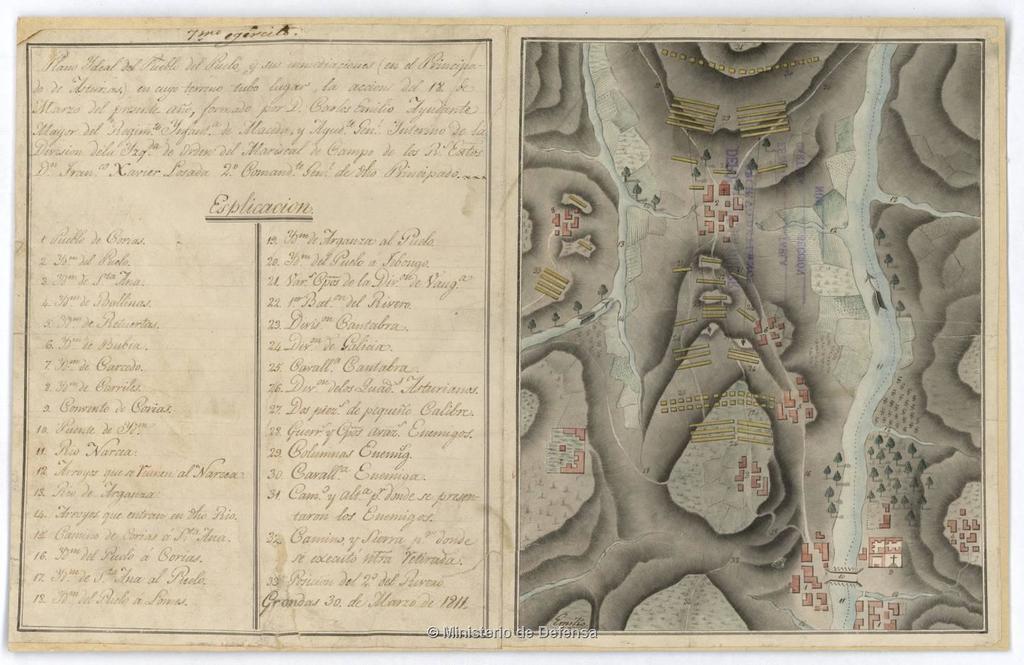 7.mo egercito.
Plano Ideal del Pueblo del Puelo, y sus inmediaciones (en el Principa-
do de Asturias) en cuyo terreno tubo lugar, la accion del 18 de
Marzo del presente año, formado por D. Carlos Emilio Ayudante
Mayor del Regim.to Infant.a de y Ayud.te Gen.l Interino de la
Division dela Izq.da de orden del Mariscal de Campo de los R.s Extos
D.n Fran.co Xavier Losada 2.o Comand.te Gen.l de dho Principado.
Esplicacion.
1. Pueblo de Corias.
2. Ydm del Puelo.
3. Ydm de S.ta Ana.
4. Ydm de
5. Ydm de Retuertas.
6. Ydm de Bubia.
7. Ydm de Carcedo.
8. Ydm de Carriles.
9. Convento de Corias.
10. Puente de Ydm
11. Rio Narcea.
12. Arroyos que al Narcea.
13. Rio de Arganza.
14. Arroyos que entran en dho Rio.
15. Camino de Corias á S.ta Ana.
16. Ydm del Puelo á Corias.
17. Ydm de S.ta Ana al Puelo.
18. Ydm del Puelo á
19. Ydm de Arganza al Puelo.
20. Ydm del Puelo a
21. Var.s Gpos de la Div.on de Vang.a
22. 1.er Bat.on del Rivero.
23. Divis.on Cantabra.
24. Div.on de Galicia.
25. Cavall.a Cantabra.
26. Div.on delos Asturianos.
27. Dos piez.s de pequeño Calibre.
28. Guerr.s y Gpos avaz.s Enemigos.
29. Columnas Enemig.
30. Cavall.a Enemiga.
31. Cam.o y alt.a p.r donde se presen-
taron los Enemigos.
32. Camino, y Sierra p.r donde
se executó ntra Retirada.
33. Posicion del 2.o del Rivero.
Grandas 30. de Marzo de 1811.
Emilio
© Ministerio de Defensa